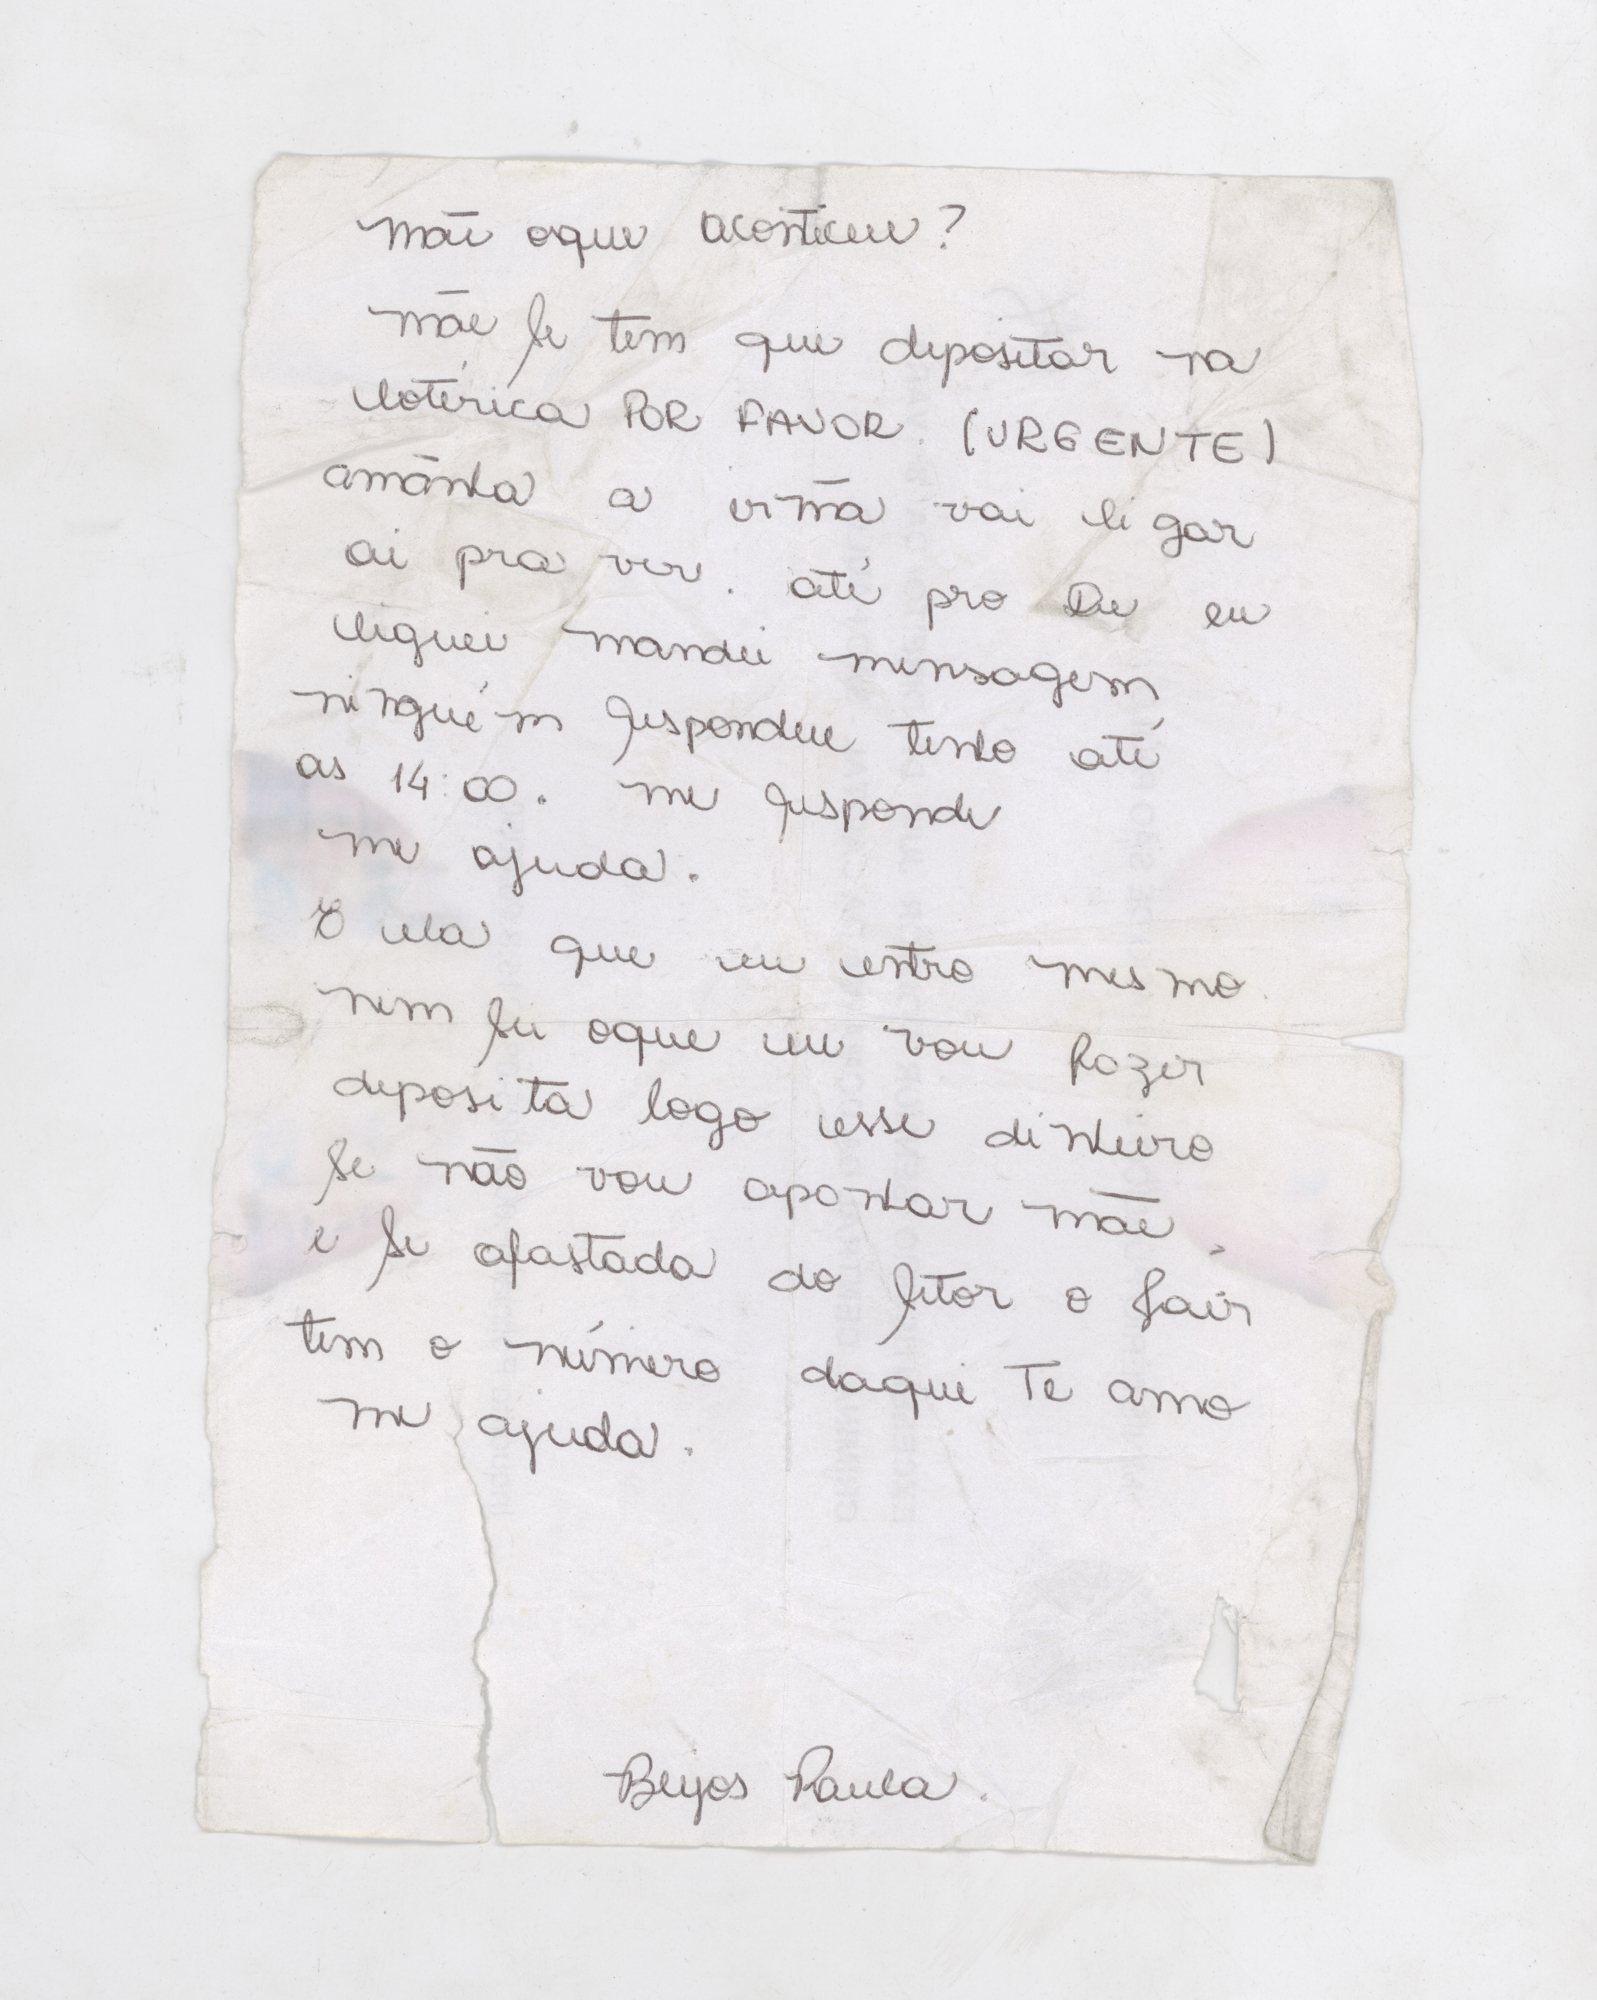 mãe oque aconteceu?
mãe se tem que depositar na
lotérica POR FAVOR. (URGENTE)
amānha a irmã vai ligar
ai pra ver. até pro Du eu
liguei mandei mensagem
ninguém respondeu tenho até
as 14:00. me responde
me ajuda.
E ela que eu entro mesmo
nem sei oque eu vou fazer
deposita logo esse dinheiro
se não vou apanhar mãe,
e se afastada do setor o fair
tem o número daqui Te amo
me ajuda.
Beijos Paula.